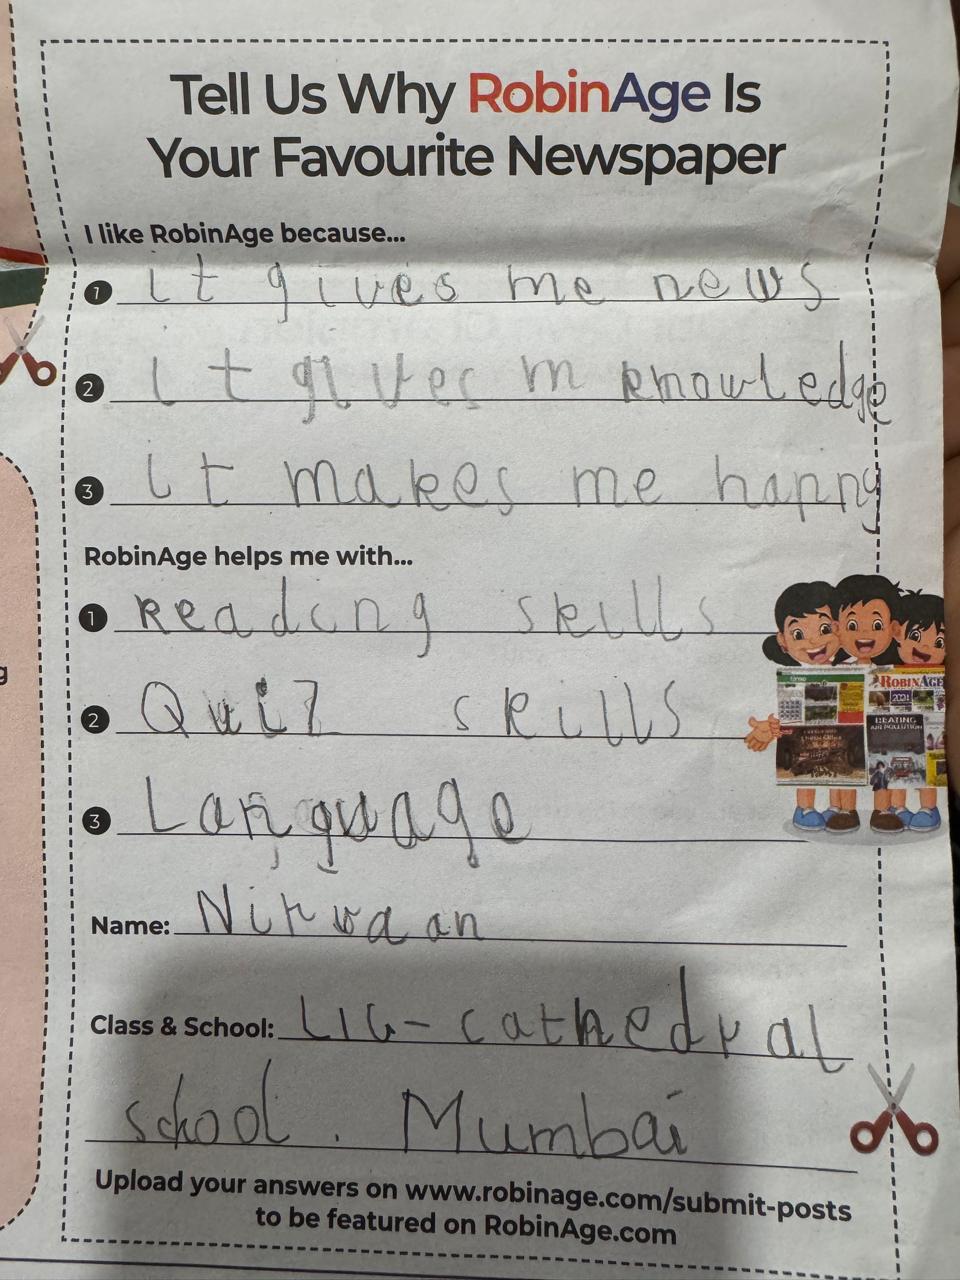 Tell Us Why RobinAge Is
Your Favourite Newspaper
I like RobinAge because...
1 it gives me news
2 it gives m knowledge
3 it makes me happy
RobinAge helps me with...
1 Reading skills
2 Quiz skills
3 Language
Name: Nirvaan
Class & School: LIG- cathedral
school. Mumbai
Upload your answers on www.robinage.com/submit-posts
to be featured on RobinAge.com
ROBINAGE
BEATING
AIR POLLUTION
g